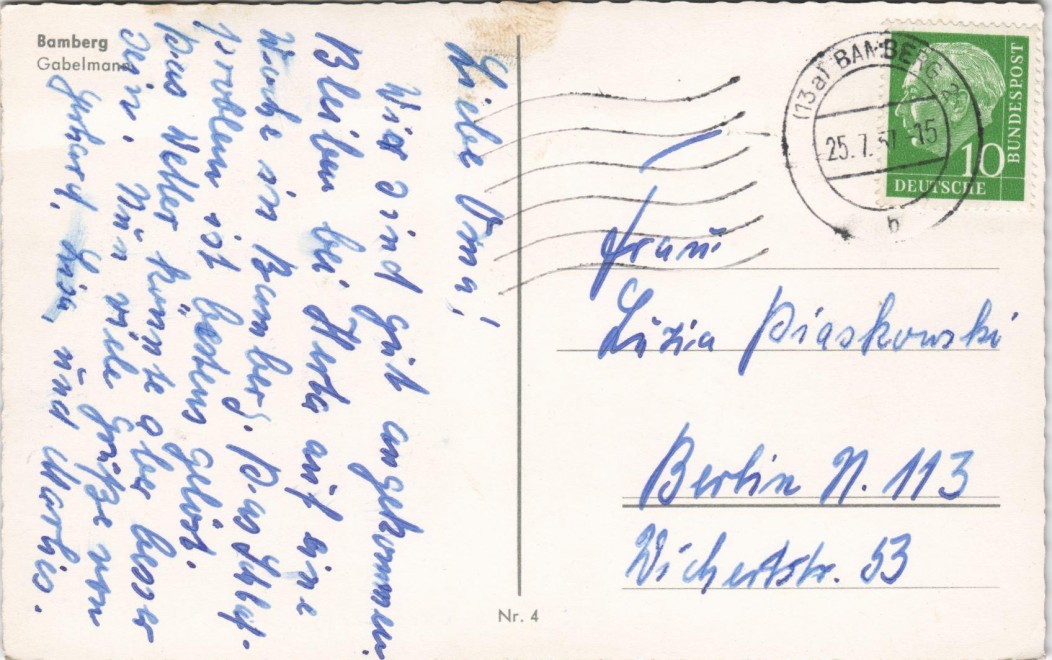 Bamberg
Gabelmann
Liebe Oma!
Wir sind gut angekommen.
Bleiben bei Herta auf eine
Woche in Bamberg. Das Schlaf-
problem ist bestens gelöst.
Das Wetter könnte aber besser
sein. Nun viele Grüße von
Gerhard, und Marlis.
(13a) BAMBERG 2
25.7.57-15
b
10
DEUTSCHE
BUNDESPOST
Frau
Luzia Piaskowski
Berlin N. 113
Wichertstr. 53
Nr. 4